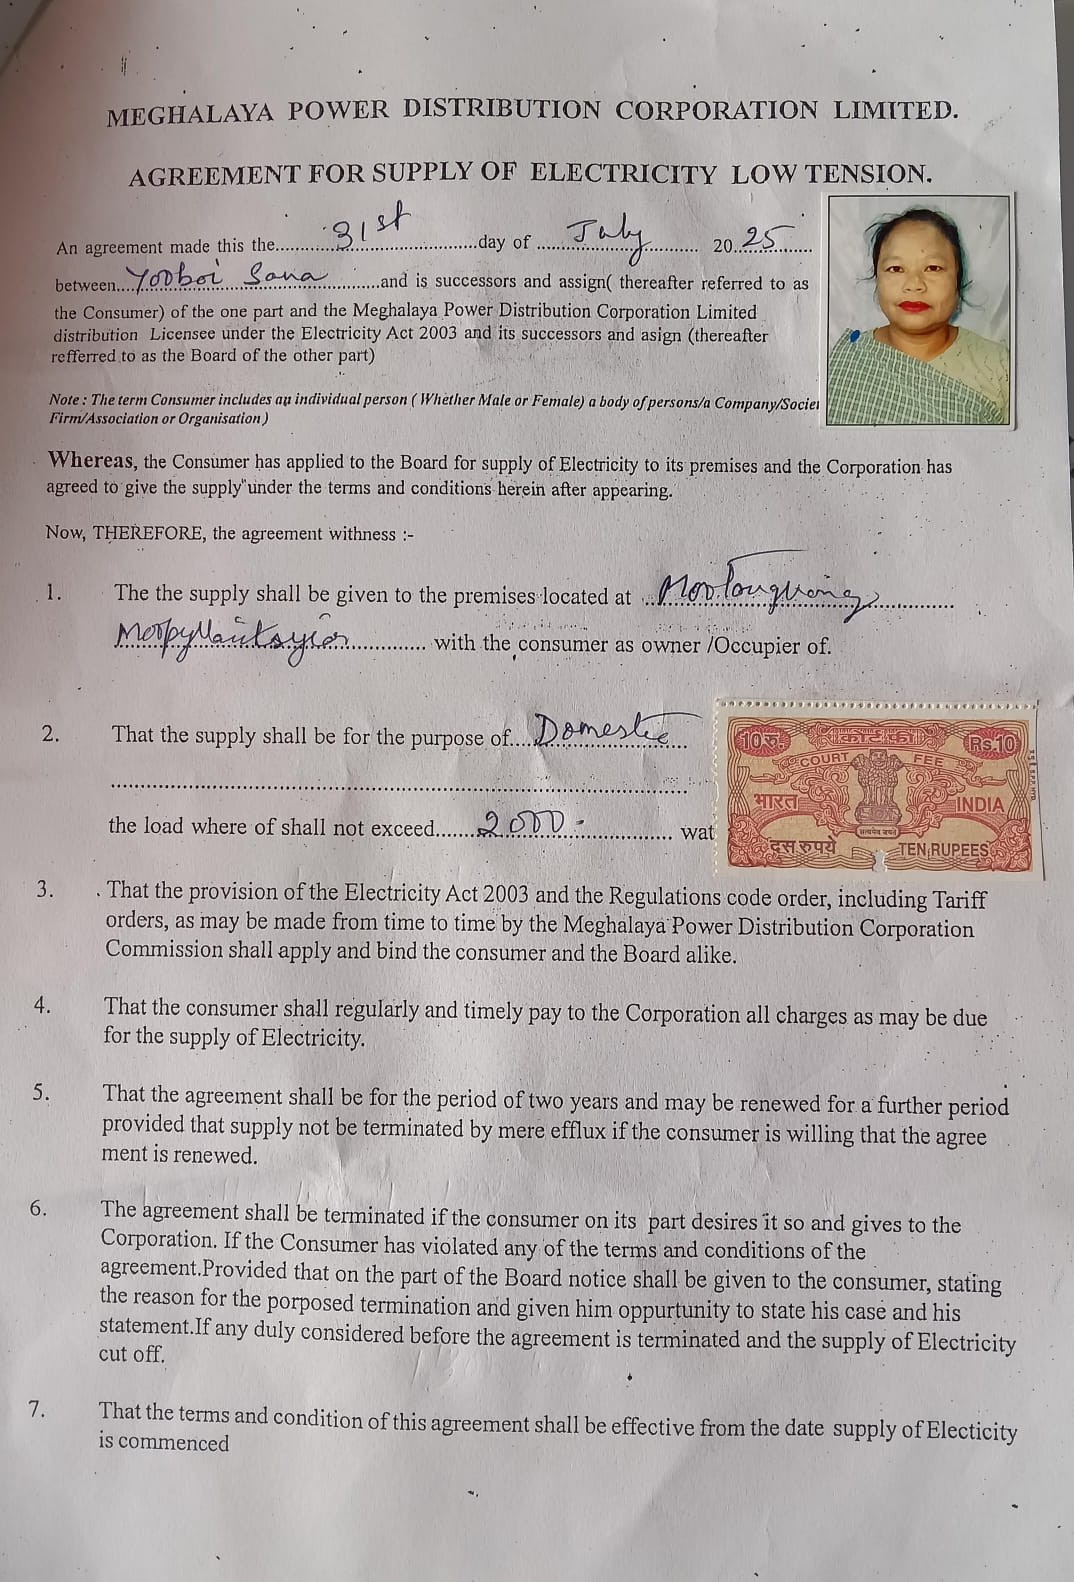 MEGHALAYA POWER DISTRIBUTION CORPORATION LIMITED.
AGREEMENT FOR SUPPLY OF ELECTRICITY LOW TENSION.
An agreement made this the....31st....day of ....July.... 20..25....
between...Yooboi Sana....and is successors and assign( thereafter referred to as
the Consumer) of the one part and the Meghalaya Power Distribution Corporation Limited
distribution Licensee under the Electricity Act 2003 and its successors and asign (thereafter
refferred to as the Board of the other part)
Note : The term Consumer includes an individual person ( Whether Male or Female) a body of persons/a Company/Societ
Firm/Association or Organisation )
Whereas, the Consumer has applied to the Board for supply of Electricity to its premises and the Corporation has
agreed to give the supply under the terms and conditions herein after appearing.
Now, THEREFORE, the agreement withness :-
1. The the supply shall be given to the premises located at
with the consumer as owner /Occupier of.
2. That the supply shall be for the purpose of....Domestic....
the load where of shall not exceed....2000-.... wat
10रु. कोर्ट फी Rs.10
COURT FEE
भारत INDIA
सत्यमेव जयते
दस रुपये TEN RUPEES
3. . That the provision of the Electricity Act 2003 and the Regulations code order, including Tariff
orders, as may be made from time to time by the Meghalaya Power Distribution Corporation
Commission shall apply and bind the consumer and the Board alike.
4. That the consumer shall regularly and timely pay to the Corporation all charges as may be due
for the supply of Electricity.
5. That the agreement shall be for the period of two years and may be renewed for a further period
provided that supply not be terminated by mere efflux if the consumer is willing that the agree
ment is renewed.
6. The agreement shall be terminated if the consumer on its part desires it so and gives to the
Corporation. If the Consumer has violated any of the terms and conditions of the
agreement.Provided that on the part of the Board notice shall be given to the consumer, stating
the reason for the porposed termination and given him oppurtunity to state his case and his
statement.If any duly considered before the agreement is terminated and the supply of Electricity
cut off.
7. That the terms and condition of this agreement shall be effective from the date supply of Electicity
is commenced